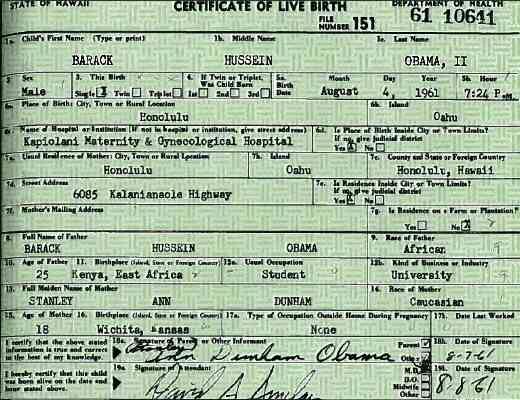 STATE OF HAWAII CERTIFICATE OF LIVE BIRTH DEPARTMENT OF HEALTH
FILE NUMBER 151 61 10641
1a. Child's First Name (Type or print) 1b. Middle Name 1c. Last Name
BARACK HUSSEIN OBAMA, II
2. Sex 3. This Birth 4. If Twin or Triplet, Was Child Born 5a. Birth Date Month Day Year 5b. Hour
Male Single X Twin Triplet 1st 2nd 3rd August 4, 1961 7:24 P.M.
6a. Place of Birth: City, Town or Rural Location 6b. Island
Honolulu Oahu
6c. Name of Hospital or Institution (If not in hospital or institution, give street address) 6d. Is Place of Birth Inside City or Town Limits? If no, give judicial district
Kapiolani Maternity & Gynecological Hospital Yes X No
7a. Usual Residence of Mother: City, Town or Rural Location 7b. Island 7c. County and State or Foreign Country
Honolulu Oahu Honolulu, Hawaii
7d. Street Address 7e. Is Residence Inside City or Town Limits? If no, give judicial district
6085 Kalanianaole Highway Yes X No
7f. Mother's Mailing Address 7g. Is Residence on a Farm or Plantation?
Yes No X
8. Full Name of Father 9. Race of Father
BARACK HUSSEIN OBAMA African
10. Age of Father 11. Birthplace (Island, State or Foreign Country) 12a. Usual Occupation 12b. Kind of Business or Industry
25 Kenya, East Africa Student University
13. Full Maiden Name of Mother 14. Race of Mother
STANLEY ANN DUNHAM Caucasian
15. Age of Mother 16. Birthplace (Island, State or Foreign Country) 17a. Type of Occupation Outside Home During Pregnancy 17b. Date Last Worked
18 Wichita, Kansas None
I certify that the above stated information is true and correct to the best of my knowledge. 18a. Signature of Parent or Other Informant Parent Other 18b. Date of Signature
(Stanley) Ann Dunham Obama 8-7-61
I hereby certify that this child was born alive on the date and hour stated above. 19a. Signature of Attendant M.D. D.O. Midwife Other 19b. Date of Signature
David A. Sinclair 8-8-61